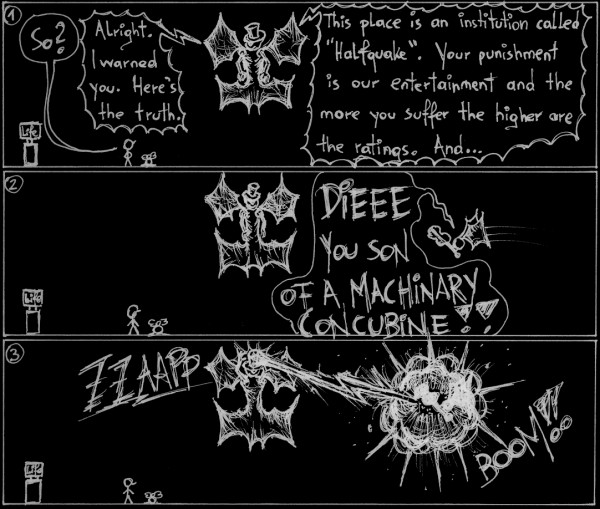 1
So?
Alright.
I warned
you. Here's
the truth.
This place is an institution called
"Halfquake". Your punishment
is our entertainment and the
more you suffer the higher are
the ratings. And...
Life
2
DiEEE
YOU SON
OF A MACHINARY
CONCUBINE!!
Life
3
ZZZAAPP
BOOM!!
Life